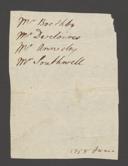 Mr Boothby
Mr Desclaines
Mr Annesley
Mr Southwell
1758 June